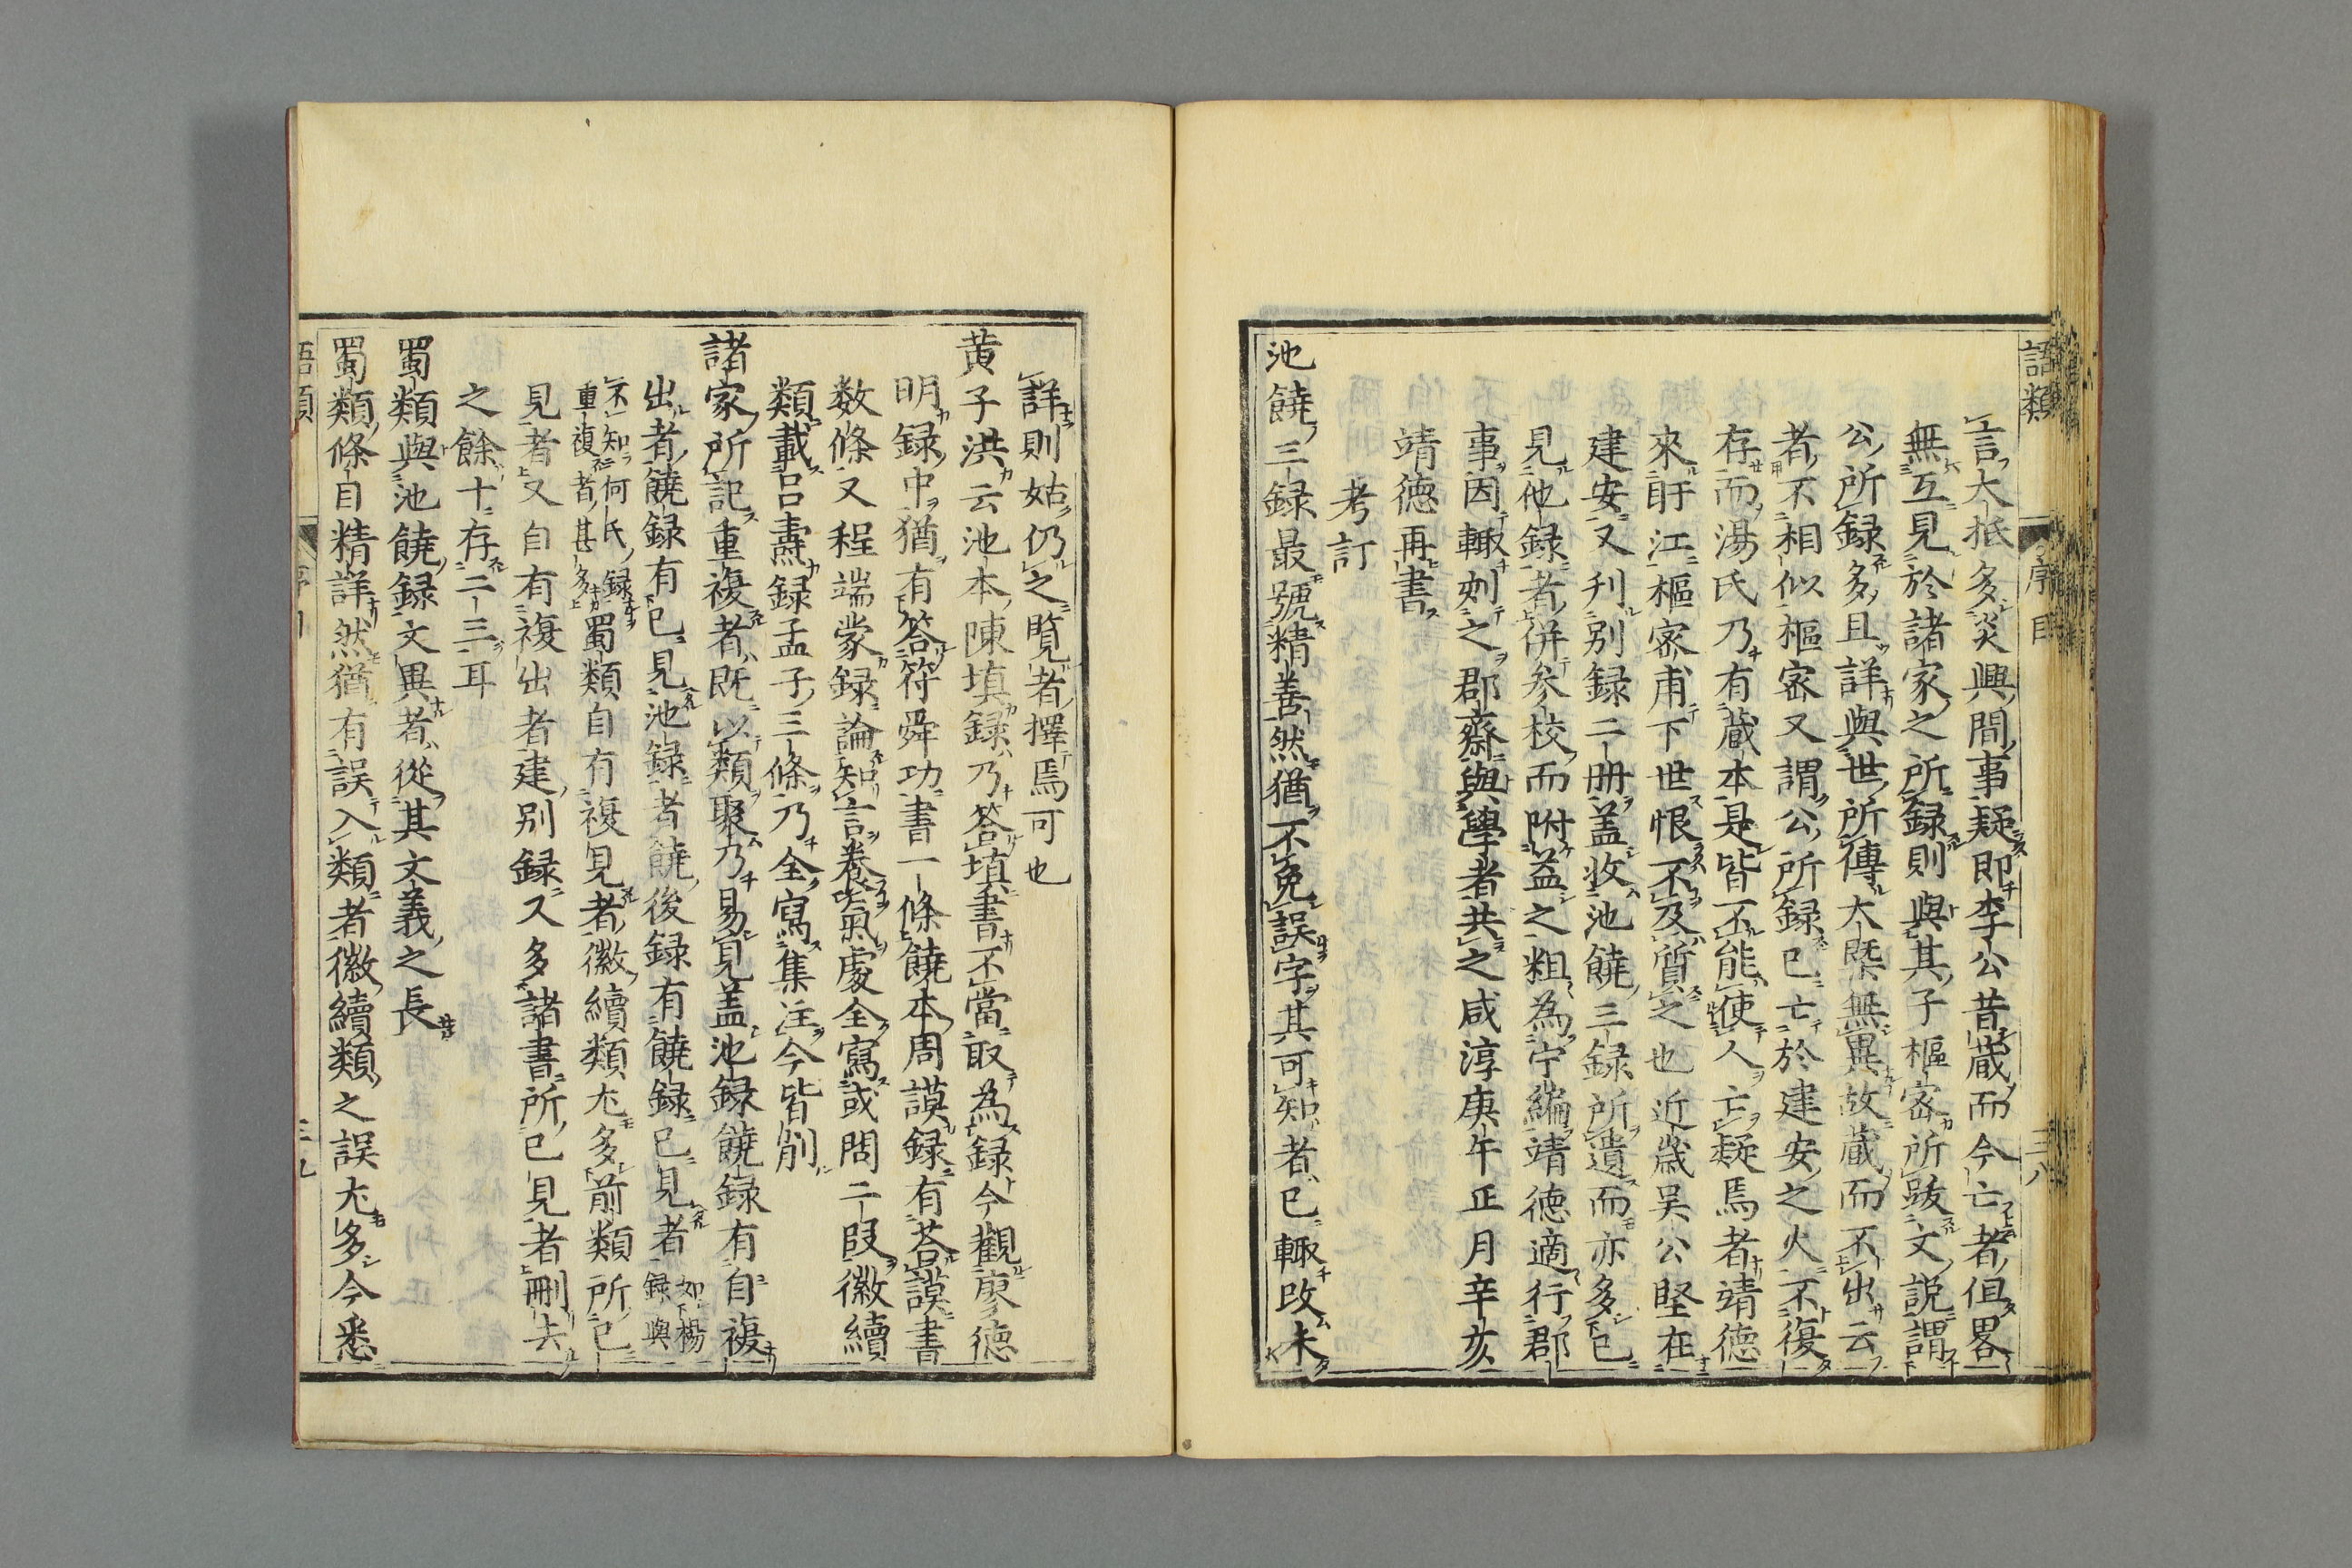 語類
序目
三八
言大抵多災興間事疑即李公昔蔵而今亡者但畧
無互見於諸家之所録則與其子樞宻所跋文説謂
公所録多且詳與世所傳大槩無異故蔵而不出云
者不相似樞宻又謂公所録已亡於建安之火不復
存而湯氏乃有蔵本是皆不能使人亡疑焉者靖德
來盱江樞宻甫下世恨不及質之也近歳吴公堅在
建安又刊别録二册盖收池饒三録所遺而亦多已
見他録者併参校而附益之粗為宁編靖德適行郡
事因輙刻之郡齋與學者共之咸淳庚午正月辛亥
靖德再書
考訂
池饒三録最號精善然猶不免誤字其可知者已輙改未
詳則姑仍之覧者擇焉可也
黄子洪云池本陳埴録乃答埴書不當取為録今觀廖德
明録中猶有答符舜功書一條饒本周謨録有荅謨書
数條又程端蒙録論知言養氣處全寫或問二段徽續
類載吕燾録孟子三條乃全寫集注今皆削
諸家所記重複者既以類聚乃易見盖池録饒録有自複
出者饒録有已見池録者饒後録有饒録已見者如下楊録與
不知何氏録重複者甚多蜀類自有複見者徽續類尤多前類所已
見者又自有複出者建别録又多諸書所已見者删去
之餘十存二三耳
蜀類與池饒録文異者從其文義之長
蜀類條目精詳然猶有誤入類者徽續類之誤尤多今悉